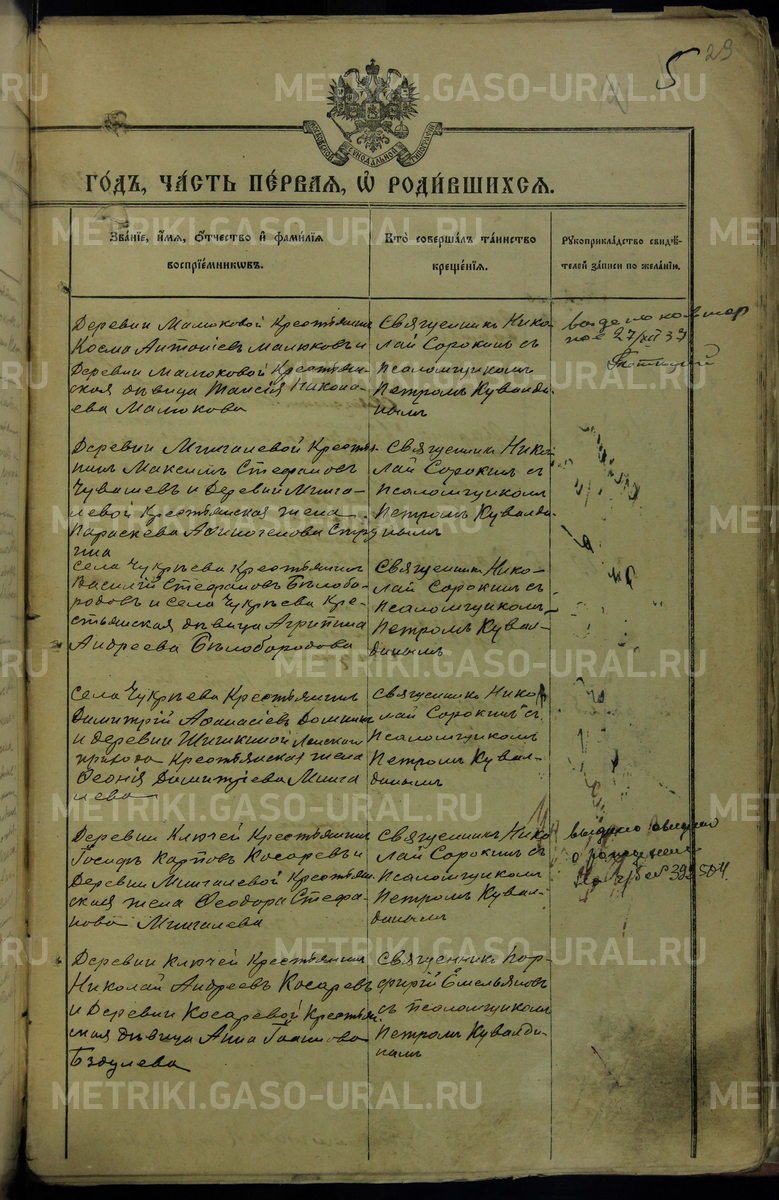 29
5
МОСКОВСКОЙ СѴНОДАЛЬНОЙ ТИПОГРАФІИ
ГОДЪ, ЧАСТЬ ПЕРВАЯ, Ѡ РОДИВШИХСЯ.
Званіе, имя, отчество и фамилія
воспріемниковъ.
Кто совершалъ таинство
крещенія.
Рукоприкладство свидѣ-
телей записи по желаніи.
Деревни Малюковой Крестьянинъ
Косма Антоніевъ Малюковъ и
Деревни Малюковой Крестьян-
ская дѣвица Таисія Никола-
ева Малюкова
Священникъ Нико-
лай Сорокинъ съ
Псаломщикомъ
Петромъ Кувалди-
нымъ
27/XII 39
Деревни Мингалевой Крестья-
нинъ Максимъ Стефановъ
Чувашевъ и Деревни Минга-
левой Крестьянская жена
Параскева Афиногенова Стру
гина
Священникъ Нико-
лай Сорокинъ съ
Псаломщикомъ
Петромъ Кувалди-
нымъ
Села Чукрѣева Крестьянинъ
Василій Стефановъ Бѣлобо-
родовъ и Села Чукрѣева Кре-
стьянская дѣвица Агрипина
Андреева Бѣлобородова
Священникъ Нико-
лай Сорокинъ съ
Псаломщикомъ
Петромъ Кувал-
динымъ
Села Чукрѣева Крестьянинъ
Димитрій Афанасіевъ
и деревни Шишкиной
прихода Крестьянская жена
Ѳеонія Димитріева Минга
лева
Священникъ Нико
лай Сорокинъ съ
Псаломщикомъ
Петромъ Кувал-
динымъ
Деревни Ключей Крестьянинъ
Іосифъ Карповъ Косаревъ и
Деревни Мингалевой Крестьян-
ская жена Ѳеодора Стефа-
нова Мингалева
Священникъ Нико
лай Сорокинъ съ
Псаломщикомъ
Петромъ Кувал-
динымъ
о рождении
Деревни Ключей Крестьянинъ
Николай Андреевъ Косаревъ
и Деревни Косаревой Крестьян
ская дѣвица Анна
Бздулева
Священникъ Пор-
фирій Емельяновъ
съ Псаломщикомъ
Петромъ Кувалди-
нымъ
METRIKI.GASO-URAL.RU